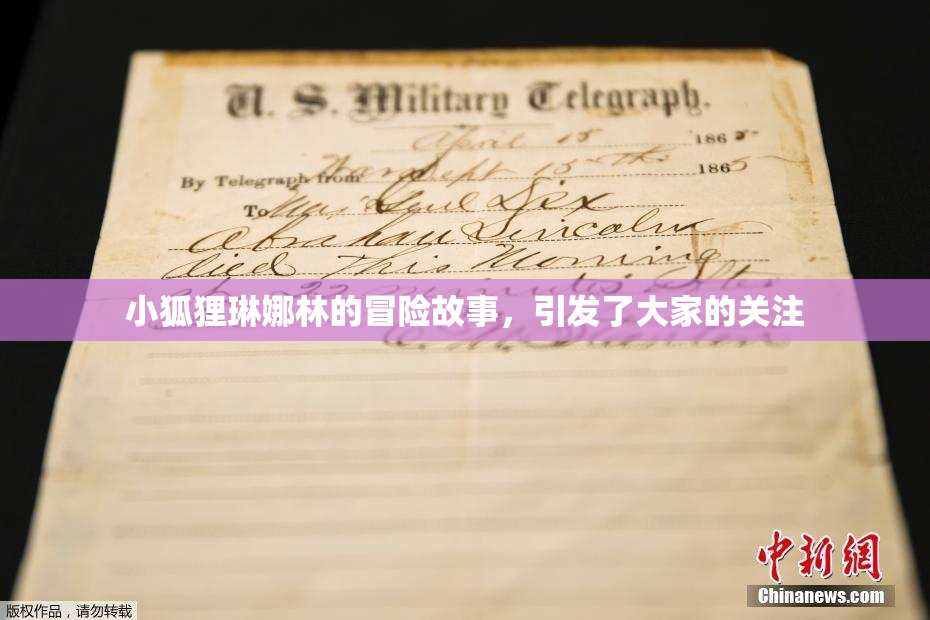 U. S. Military Telegraph.
April 15 1865
By Telegraph from War Dept 15th 1865
To Maj Genl Dix
Abraham Lincoln
died This Morning
at 22 minutes after
小狐狸琳娜林的冒险故事，引发了大家的关注
E. M. Stanton
中新网
Chinanews.com
版权作品，请勿转载